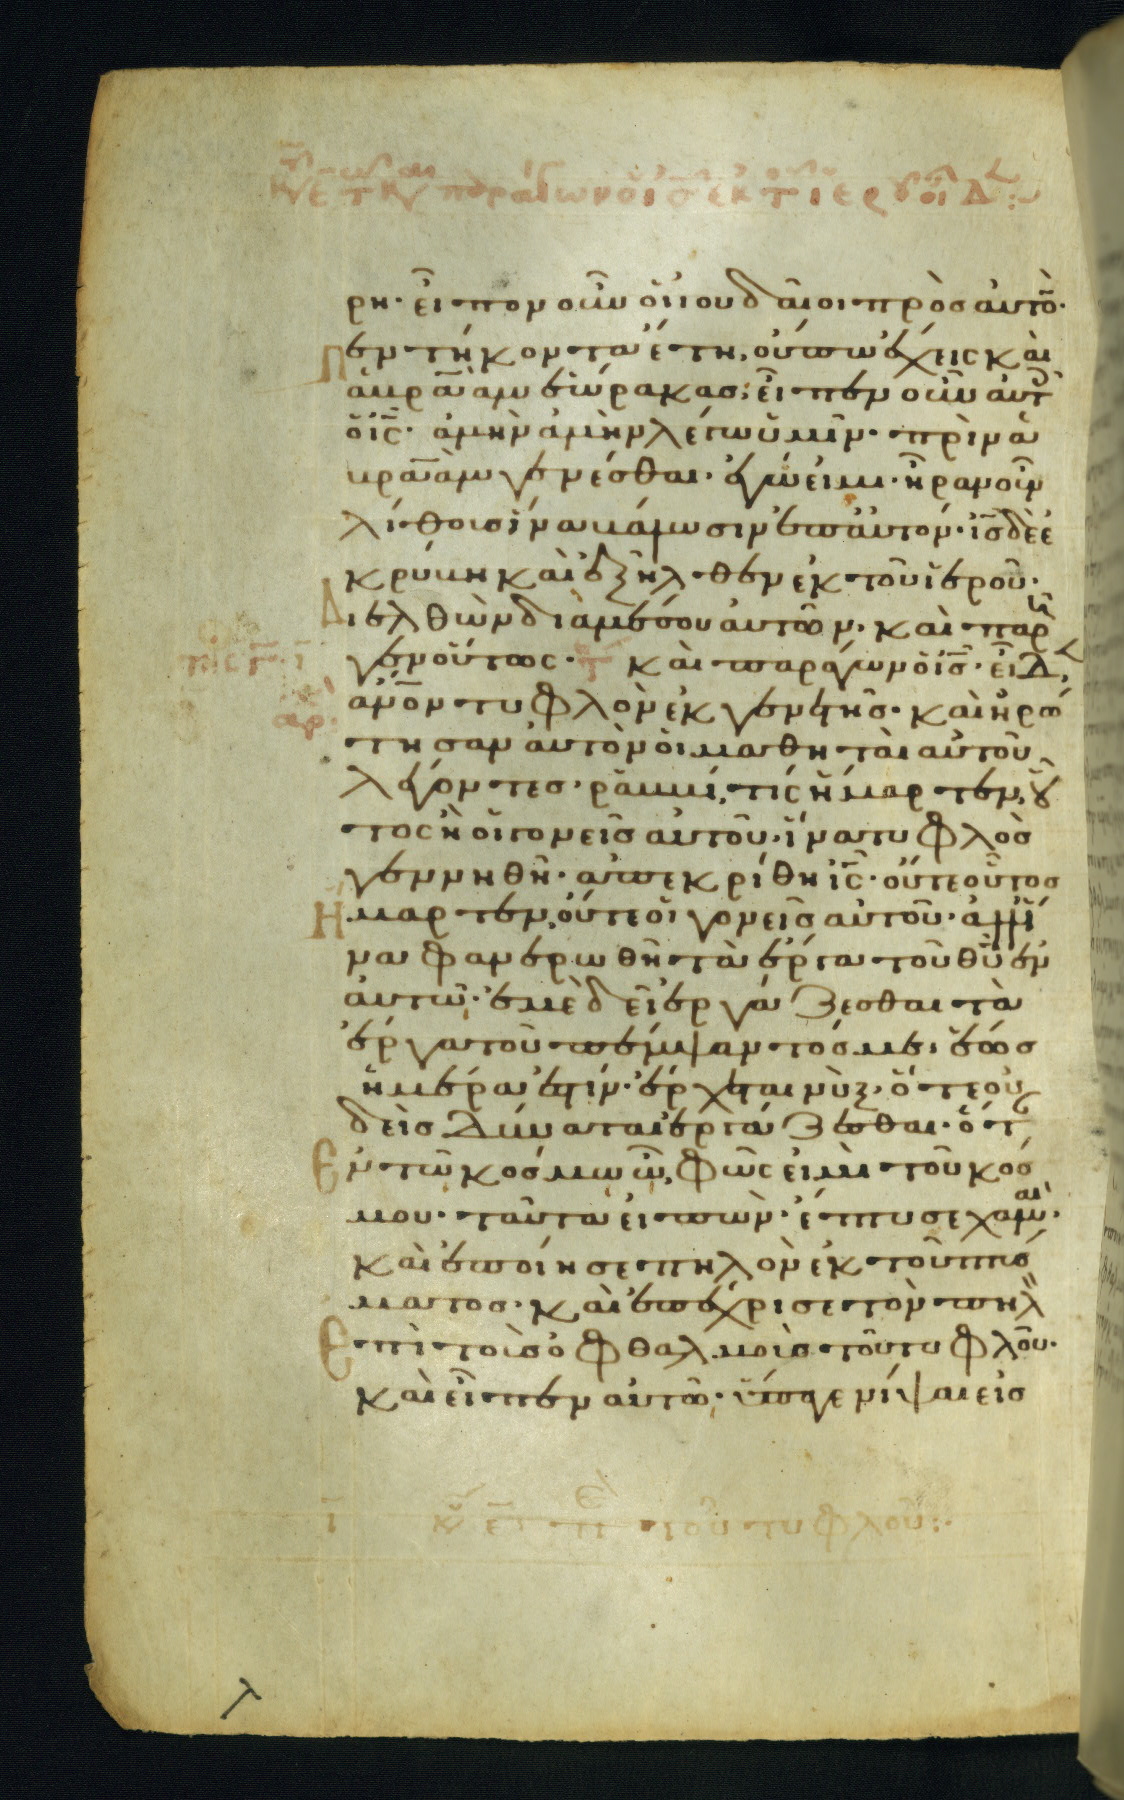 ρη· εἶπον οὖν οἱ ἰουδαῖοι πρὸς αὐτὸ̄·
Πεντήκοντα ἔτη οὔπω ἔχεις καὶ
ἀβραὰμ ἑώρακας; εἶπεν οὖν αὐτ
ὁ ι̅ς̅· ἀμὴν ἀμὴν λέγω ὑμῖν· πρὶν ἀ
βραὰμ γενέσθαι· ἐγώ εἰμι· ἦραν οὖν
λίθους ἵνα βάλωσιν ἐπ αὐτόν· ι̅ς̅ δὲ ἐ
κρύβη καὶ ἐξῆλθεν ἐκ τοῦ ἱεροῦ·
Διελθὼν διὰ μέσου αὐτῶν· καὶ παρῆ
γεν οὕτως· καὶ παράγων ὁ ι̅ς̅· εἶδ
ἄνο̅ν τυφλὸν ἐκ γενετῆς· καὶ ἠρώ
τησαν αὐτὸν οἱ μαθηταὶ αὐτοῦ
λέγοντες· ῥαββί, τίς ἥμαρτεν, οὗ
τος ἢ οἱ γονεῖς αὐτοῦ· ἵνα τυφλὸς
γεννηθῆ· ἀπεκρίθη ι̅ς̅· οὔτε οὗτος
Ἥμαρτεν, οὔτε οἱ γονεῖς αὐτοῦ· ἀλλ ἵ
να φανερωθῆ τὰ ἔργα τοῦ θ̅υ̅ ἐν
αὐτῶ· ἐμὲ δεῖ ἐργάζεσθαι τὰ
ἔργα τοῦ πέμψαντός με· ἕως
ἡμέρα ἐστίν· ἔρχεται νὺξ· ὅτε οὐ
δεὶς δύναται ἐργάζεσθαι· ὅτ
Ἐν τῶ κόσμω ὦ, φῶς εἰμὶ τοῦ κόσ
μου· ταῦτα εἰπὼν· ἔπτυσε χαμαὶ·
καὶ ἐποίησε πηλὸν ἐκ τοῦ πτύσ
ματος· καὶ ἐπέχρισε τὸν πηλὸ
Ἐπὶ τοὺς ὀφθαλμοὺς τοῦ τυφλοῦ·
καὶ εἶπεν αὐτῶ· ὕπαγε νίψαι εἰς
ι̅ περὶ τοῦ τυφλοῦ: